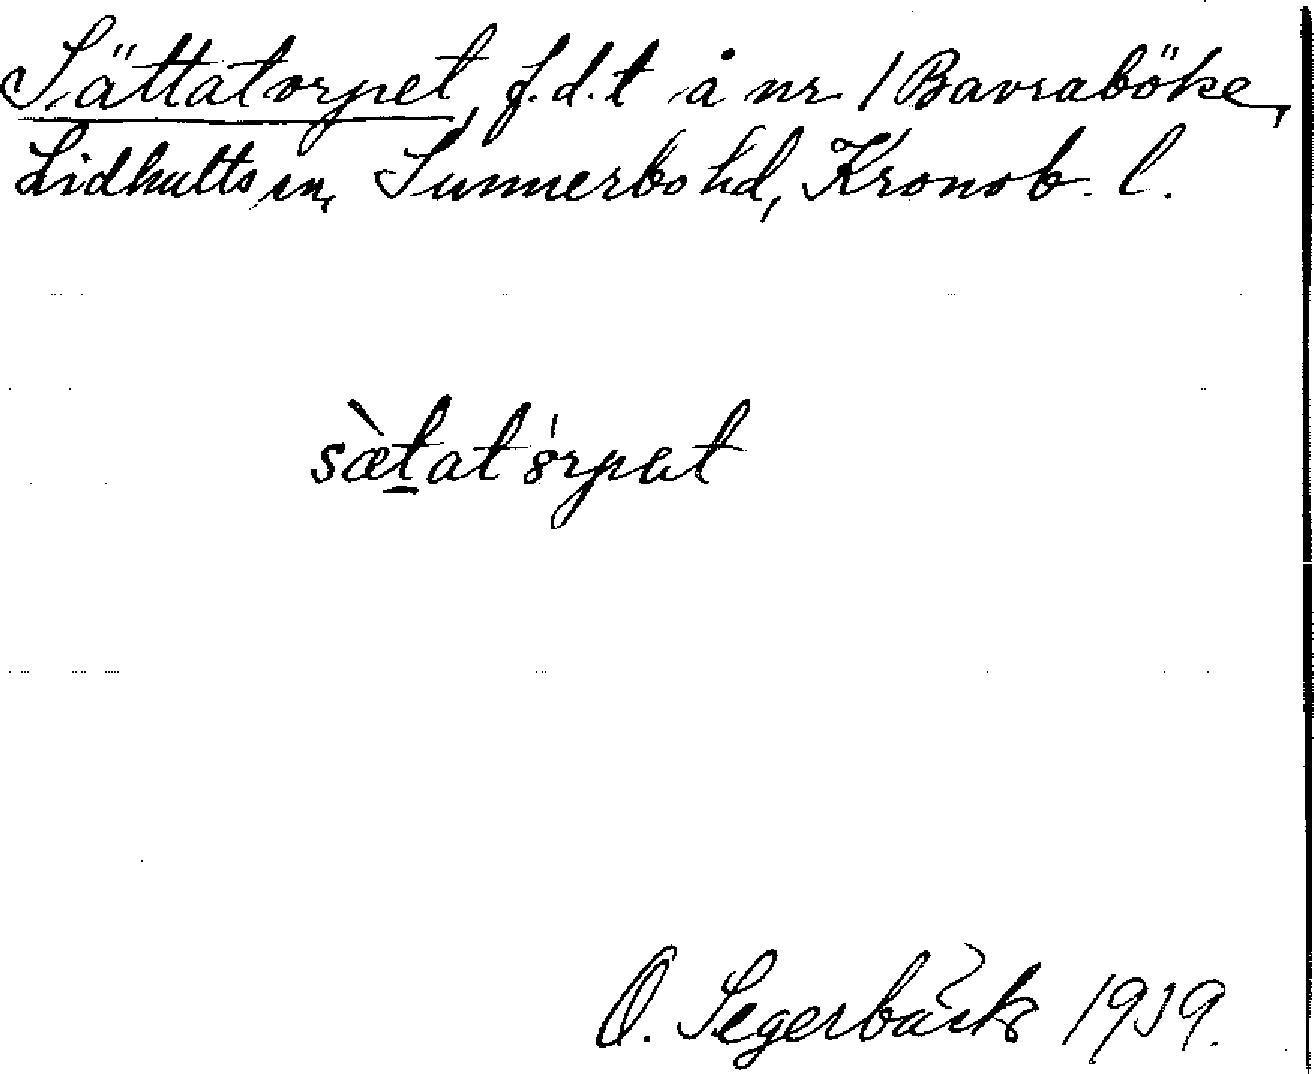 Sättatorpet, f.d.t å nr 1 Bavraböke,
Lidhults sn, Sunnerbo hd, Kronob. l.
sæ̀t̲at8́rpat
O. Segerbäck 1939.